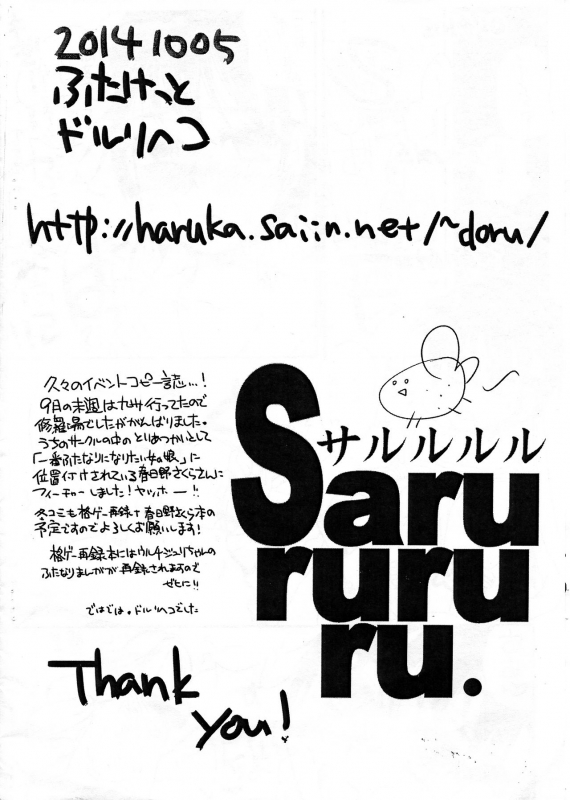 20141005
ふたけっと
ドルリヘコ
http://haruka.saiin.net/~doru/
久々のイベントコピー誌…!
9日の末週は九州行ってたので
修羅場でしたががんばりました。
うちのサークルの中のとりあつかいとして
「一番ふたなりになりたい女の娘。」に
位置付けされている春日野さくらさんに
フィーチャーしました!ヤッホー!!
冬コミも格ゲー再録+春日野さくら本の
予定ですのでよろしくお願いします!
格ゲー再録本にはウルチジュリちゃんの
ふたなりまんがが再録されますので
ぜひに!!
ではでは。ドルリヘコでした
サルルルル
Saru
ruru
ru.
Thank
you!